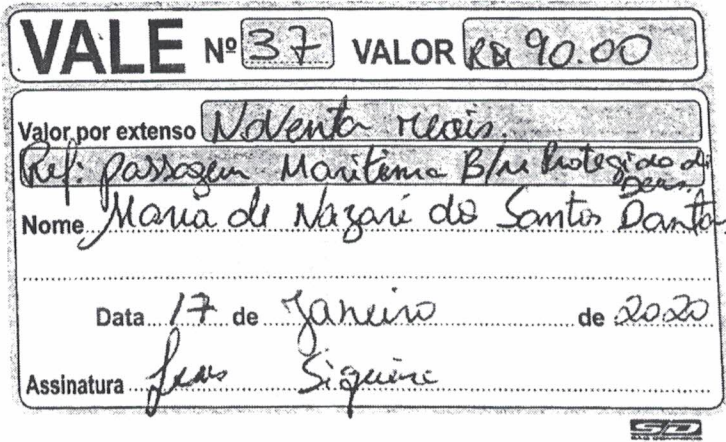 VALE Nº 37 VALOR R$ 90.00
Valor por extenso Noventa reais.
Ref: passagem Maritima B/M Protegido de
Deus.
Nome Maria de Nazaré do Santos Dantas
Data 17 de Janeiro de 2020
Assinatura Siqueira
SD